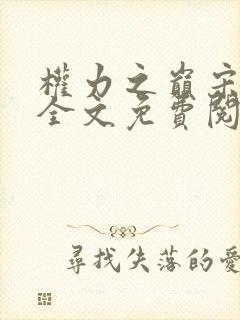 權力之巔宋
全文免費閱
尋找失落的愛